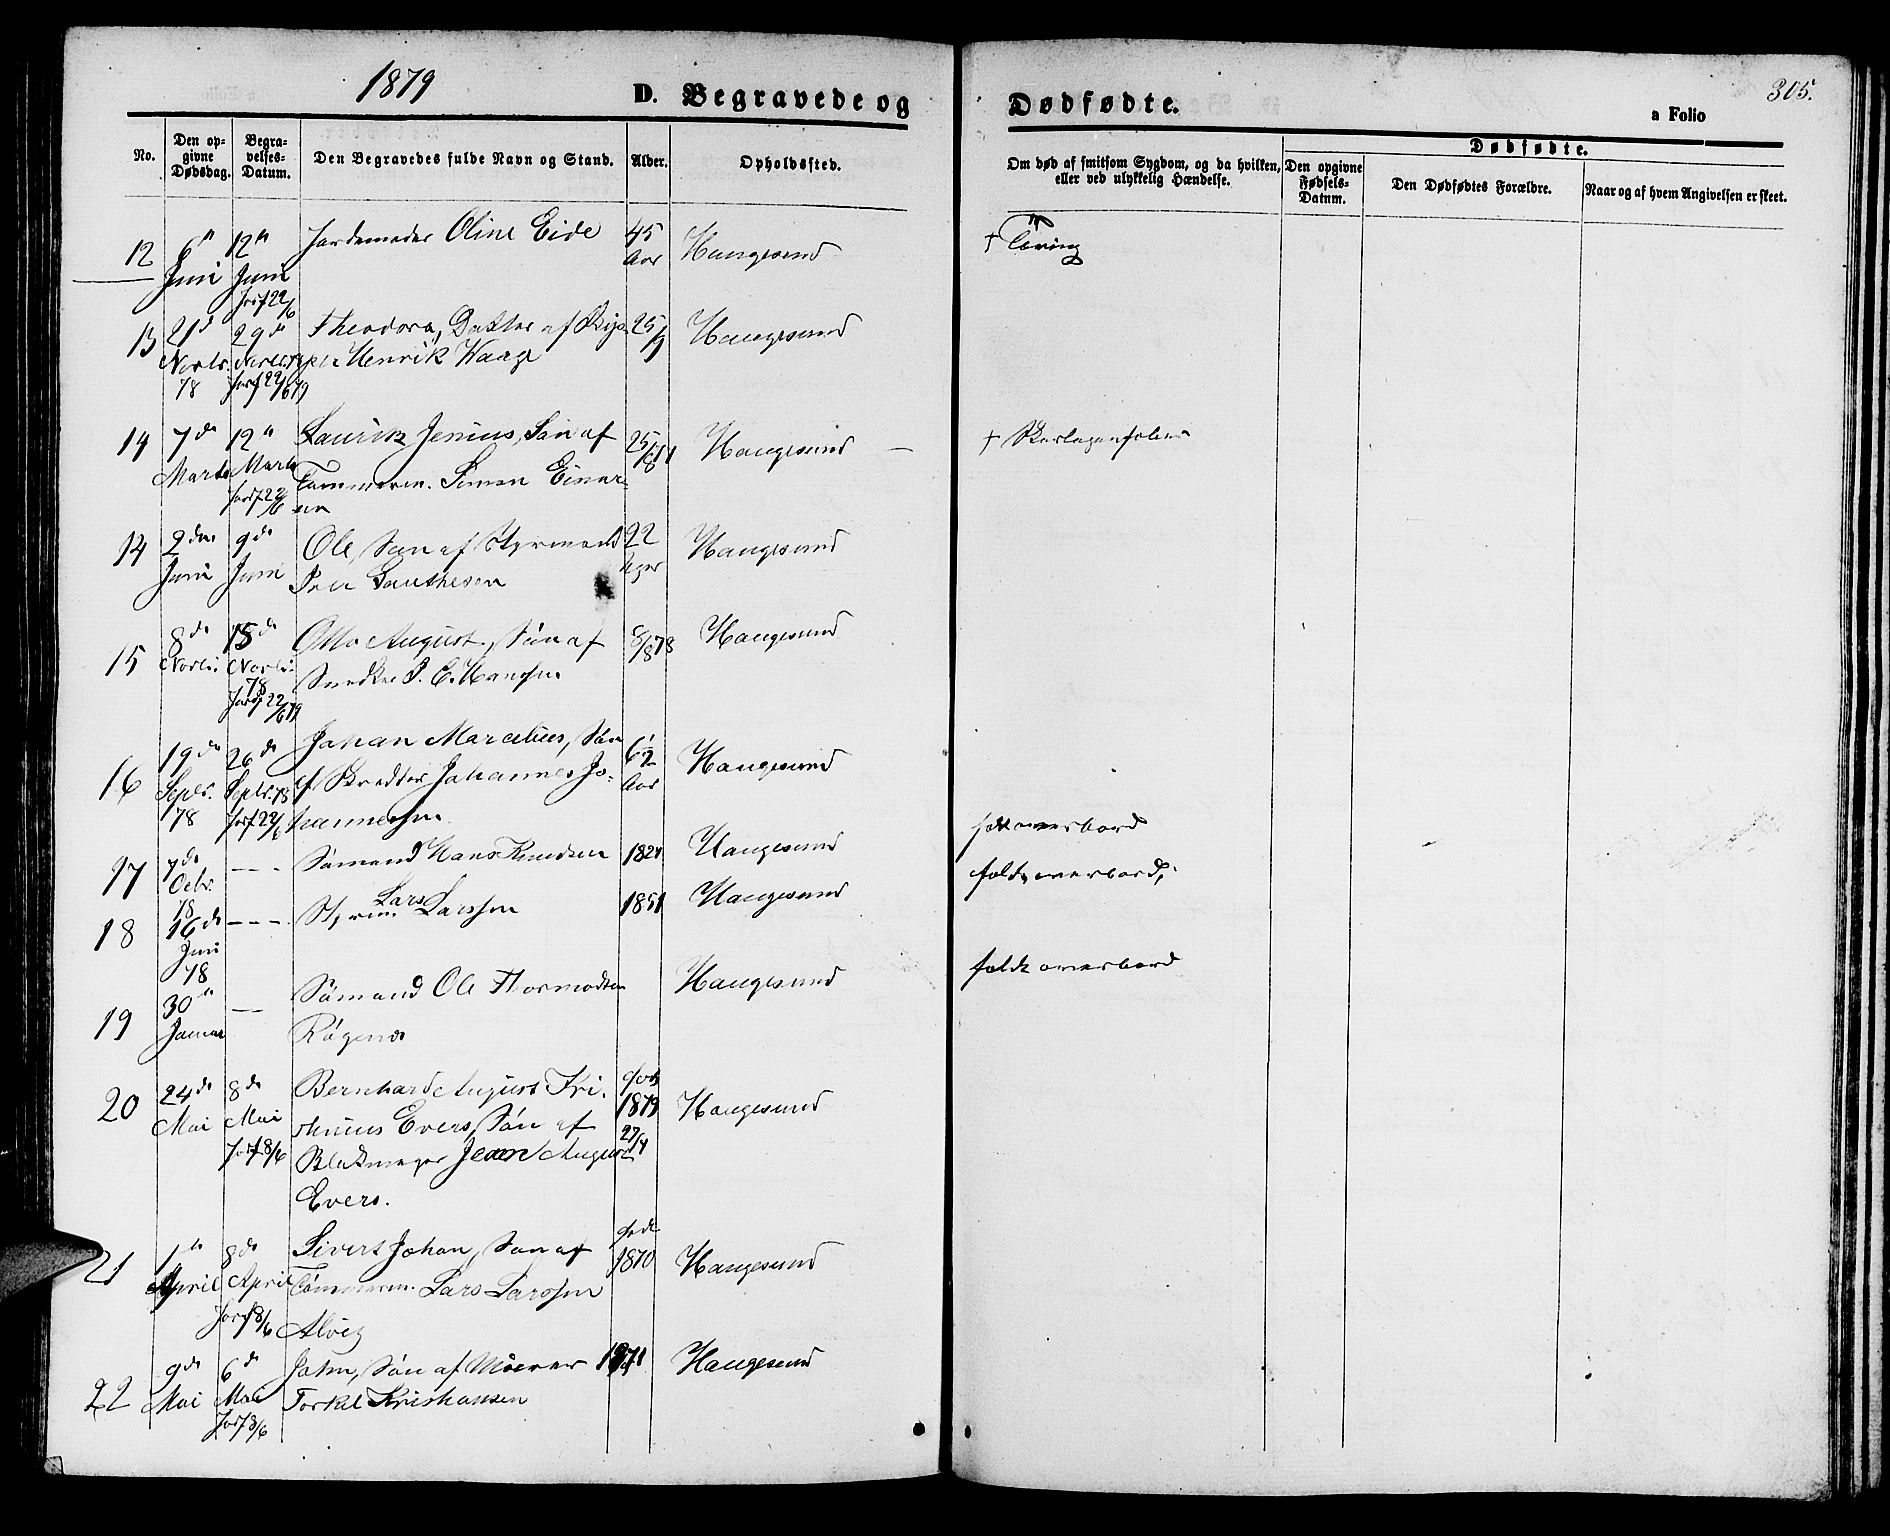 1879
D. Begravede og
Dødfødte.
305.
a Folio
No.
Den opgivne Dødsdag.
Begravelses-Datum.
Den Begravedes fulde Navn og Stand.
Alder.
Opholdssted.
Om død af smitsom Sygdom, og da hvilken, eller ved ulykkelig Hændelse.
Dødfødte.
Den opgivne Fødsels-Datum.
Den Dødfødtes Forældre.
Naar og af hvem Angivelsen er skeet.
12 6te 12te Jordemoder Oline Eide 45 Haugesund † Tæring
Juni Juni Aar
Jordf 22/6
13 21de 29de Theodora, Datter af 25/9 Haugesund
Novbr. Novbr. Henrik Waage
78 Jordf 22/6 79
14 7de 12te Laurik Jenius, Søn af 25/8 71 Haugesund † Skarlagensfeber
Marts Marts Tømmerm. Simon Einar-
Jordf 22/6 sen
14 2den 9de Ole, Søn af Styrmand 22 Haugesund
Juni Juni Peer Lauritzen Uger
15 8de 15de Otto August, Søn af 8/8 78 Haugesund
Novbr. Novbr. Snedker P. C. Hansen
78
Jordf 22/6 79
16 19de 26de Johan Marcelius, Søn 6 1/2 Haugesund
Septr. Septr. 78 af Skrædder Johannes Jo- Aar
78 Jordf 22/6 hannessen
17 7de --- Sømand Hans Knudsen 1821 Haugesund faldt overbord
Octbr.
78
18 16de --- Styrm. Lars Larssen 1851 Haugesund faldt overbord,
Juni
78
19 30te --- Sømand Ole Thormodsen Haugesund faldt overbord
Januar Røgenes
20 24de 8de Bernhard August Kri- født Haugesund
Mai Mai stinius Evers, Søn af 1879
Jordf 8/6 Blikmager Jean August 27/4
Evers.
21 1te 8de Sivert Johan, Søn af født Haugesund
April April Tømmerm. Lars Larssen 1870
Jordf 8/6 Alvig
22 9de 6de John, Søn af Murer 1871 Haugesund
Mai Mai Torkel Kristiansen
Jordf 8/6